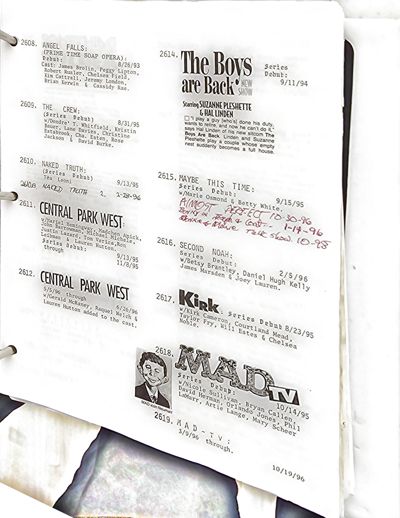 2608. ANGEL FALLS:
(PRIME TIME SOAP OPERA).
Debut: 8/26/93
Cast: James Brolin, Peggy Lipton,
Robert Rusler, Chelsea Field,
Kim Cattrall, Jeremy London,
Brian Kerwin & Cassidy Rae.
2609. THE CREW:
(Series Debut) 8/31/95
w/Rose Jackson
Bauer, Lane Davies, Christine
Estabrook, Chas. Esten, Rose
Jackson & David Burke.
2610. NAKED TRUTH:
(Series Debut) 9/13/95
Tea Leoni
NAKED TRUTH 2. 2-28-96
2611. CENTRAL PARK WEST
w/Mariel Hemingway, Madchen Amick,
John Barrowman, Michael Michele,
Lauren
Series Debut: 9/13/95
through 11/8/95
2612. CENTRAL PARK WEST
5/5/96 through 6/28/96
w/Gerald McRaney, Raquel Welch &
Lauren Hutton added to the cast.
2614. The Boys
are Back
NEW
SHOW
Series
Debut:
9/11/94
Starring SUZANNE PLESHETTE
& HAL LINDEN
"I play a guy (who's) done his duty,
wants to retire, and now he can't do it,"
says Hal Linden of his new sitcom The
Boys Are Back. Linden and Suzanne
Pleshette play a couple whose empty
nest suddenly becomes a full house.
2615. MAYBE THIS TIME:
Series Debut: 9/15/95
w/Marie Osmond & Betty White.
ALMOST PERFECT 10-30-96
1-14-96
Talk Show. 10-98
2616. SECOND NOAH:
Series Debut: 2/5/96
w/Betsy Brantley, Daniel Hugh Kelly
James Marsden & Joey Lauren.
2617. Kirk Series Debut 8/23/95
w/Kirk Cameron, Courtland Mead,
Taylor Fry, Will Estes & Chelsea
Noble.
2618. MAD TV
Series Debut: 10/14/95
w/Nicole Sullivan, Bryan Callen,
David Herman, Orlando Jones, Phil
LaMarr, Artie Lange, Mary Scheer
2619. MAD-TV:
3/9/96 through.
10/19/96